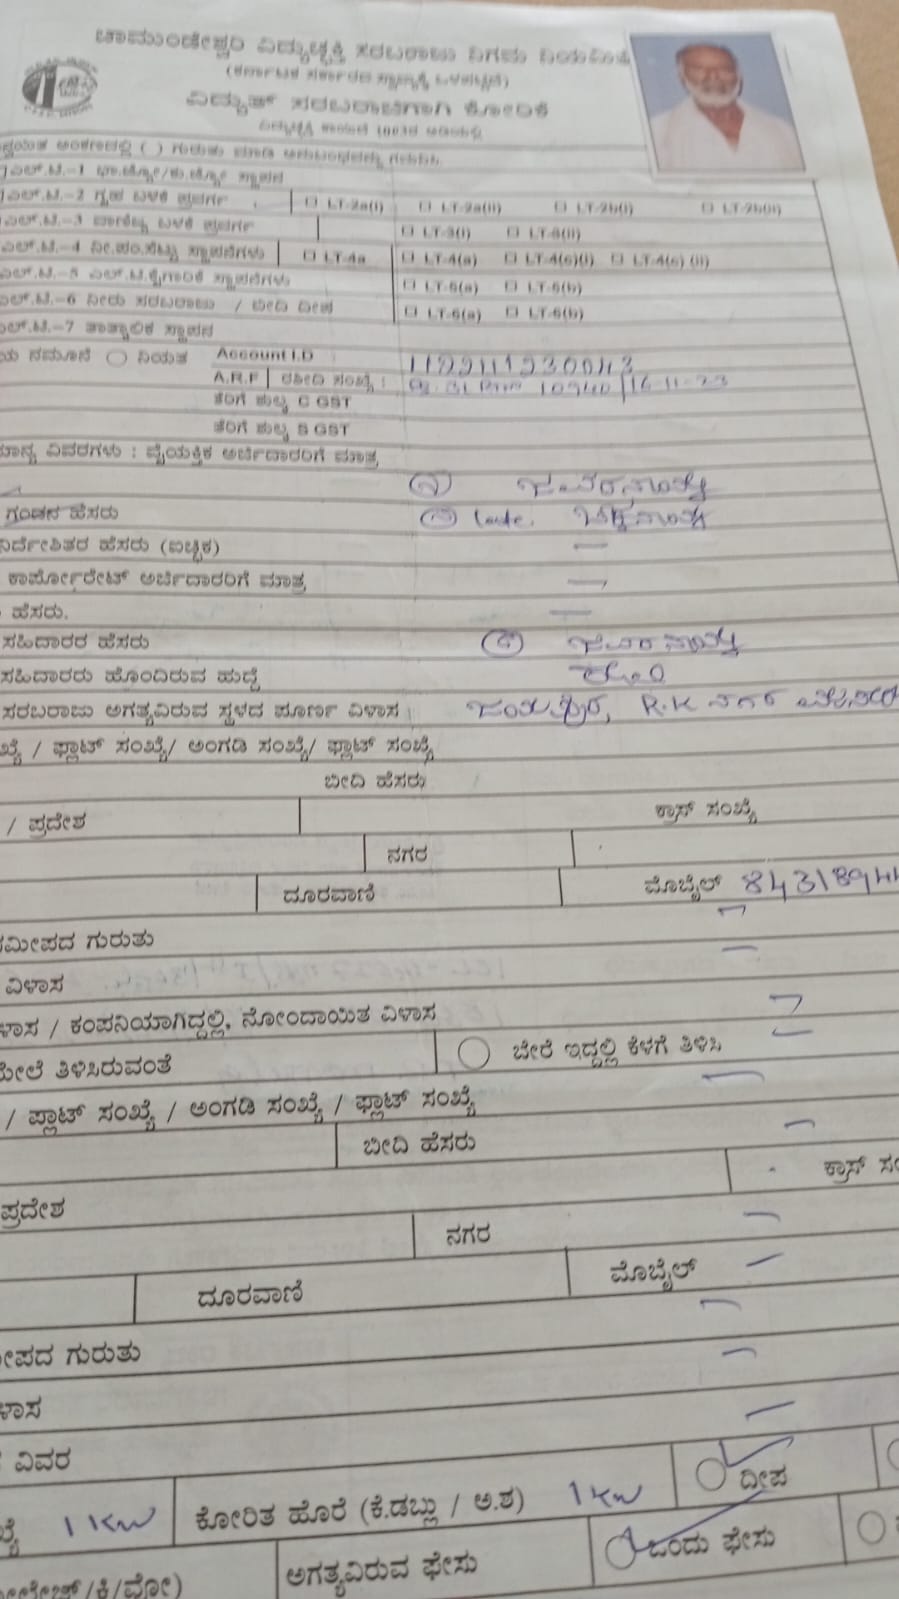 ಚಾಮುಂಡೇಶ್ವರಿ ವಿದ್ಯುಚ್ಛಕ್ತಿ ಸರಬರಾಜು ನಿಗಮ ನಿಯಮಿತ
(ಕರ್ನಾಟಕ ಸರ್ಕಾರದ ಸ್ವಾಮ್ಯಕ್ಕೆ ಒಳಪಟ್ಟಿದೆ)
ವಿದ್ಯುತ್ ಸರಬರಾಜಿಗಾಗಿ ಕೋರಿಕೆ
ವಿದ್ಯುಚ್ಛಕ್ತಿ ಕಾಯಿದೆ 2003ರ ಅಡಿಯಲ್ಲಿ
ಎಲ್.ಟಿ.-1 ಭಾ.ಜ್ಯೋ/ಕು.ಜ್ಯೋ ಸ್ಥಾಪನ
ಎಲ್.ಟಿ.-2 ಗೃಹ ಬಳಕೆ ಪ್ರವರ್ಗ LT-2a(i) LT-2a(ii) LT-2b(i) LT-2b(ii)
ಎಲ್.ಟಿ.-3 ವಾಣಿಜ್ಯ ಬಳಕೆ ಪ್ರವರ್ಗ LT-3(i) LT-3(ii)
ಎಲ್.ಟಿ.-4 ನೀ.ಪಂ.ಸೆಟ್ಟು ಸ್ಥಾಪನೆಗಳು LT-4a LT-4(a) LT-4(c)(i) LT-4(c)(ii)
ಎಲ್.ಟಿ.-5 ಎಲ್.ಟಿ.ಕೈಗಾರಿಕೆ ಸ್ಥಾಪನೆಗಳು LT-5(a) LT-5(b)
ಎಲ್.ಟಿ.-6 ನೀರು ಸರಬರಾಜು / ಬೀದಿ ದೀಪ LT-6(a) LT-6(b)
ಎಲ್.ಟಿ.-7 ತಾತ್ಕಾಲಿಕ ಸ್ಥಾಪನ
ನಮೂನೆ ನಿಯತ Account I.D
A.R.F ರಶೀದಿ ಸಂಖ್ಯೆ : 10940 16-11-23
ತೆರಿಗೆ ಶುಲ್ಕ C GST
ತೆರಿಗೆ ಶುಲ್ಕ S GST
ವಿವರಗಳು : ವೈಯಕ್ತಿಕ ಅರ್ಜಿದಾರರಿಗೆ ಮಾತ್ರ
ಜವರನಾಯ್ಕ
ಗಂಡನ ಹೆಸರು late.
ನಿರ್ದೇಶಿತರ ಹೆಸರು (ಐಚ್ಛಿಕ) —
ಕಾರ್ಪೋರೇಟ್ ಅರ್ಜಿದಾರರಿಗೆ ಮಾತ್ರ —
ಹೆಸರು. —
ಸಹಿದಾರರ ಹೆಸರು ಜವರನಾಯ್ಕ
ಸಹಿದಾರರು ಹೊಂದಿರುವ ಹುದ್ದೆ
ಸರಬರಾಜು ಅಗತ್ಯವಿರುವ ಸ್ಥಳದ ಪೂರ್ಣ ವಿಳಾಸ : R.K ನಗರ
/ ಫ್ಲಾಟ್ ಸಂಖ್ಯೆ/ ಅಂಗಡಿ ಸಂಖ್ಯೆ/ ಫ್ಲಾಟ್ ಸಂಖ್ಯೆ
ಬೀದಿ ಹೆಸರು
/ ಪ್ರದೇಶ ಕ್ರಾಸ್ ಸಂಖ್ಯೆ
ನಗರ
ದೂರವಾಣಿ ಮೊಬೈಲ್ 8431894
ಗುರುತು
ವಿಳಾಸ
/ ಕಂಪನಿಯಾಗಿದ್ದಲ್ಲಿ, ನೋಂದಾಯಿತ ವಿಳಾಸ
ಮೇಲೆ ತಿಳಿಸಿರುವಂತೆ ಬೇರೆ ಇದ್ದಲ್ಲಿ ಕೆಳಗೆ ತಿಳಿಸಿ
/ ಪ್ಲಾಟ್ ಸಂಖ್ಯೆ / ಅಂಗಡಿ ಸಂಖ್ಯೆ / ಫ್ಲಾಟ್ ಸಂಖ್ಯೆ
ಬೀದಿ ಹೆಸರು
ಪ್ರದೇಶ ಕ್ರಾಸ್
ನಗರ
ದೂರವಾಣಿ ಮೊಬೈಲ್
ಗುರುತು
ವಿವರ
1 Kw ಕೋರಿತ ಹೊರೆ (ಕೆ.ಡಬ್ಲು / ಅ.ಶ) 1 Kw ದೀಪ
ಅಗತ್ಯವಿರುವ ಫೇಸು ಒಂದು ಫೇಸು